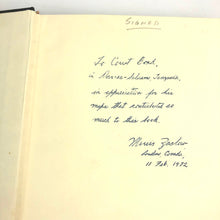 SIGNED
To Court Bond,
in appreciation for his
maps that contributed so
much to this book.
Morris Zaslow
London Canada,
11 Feb. 1972